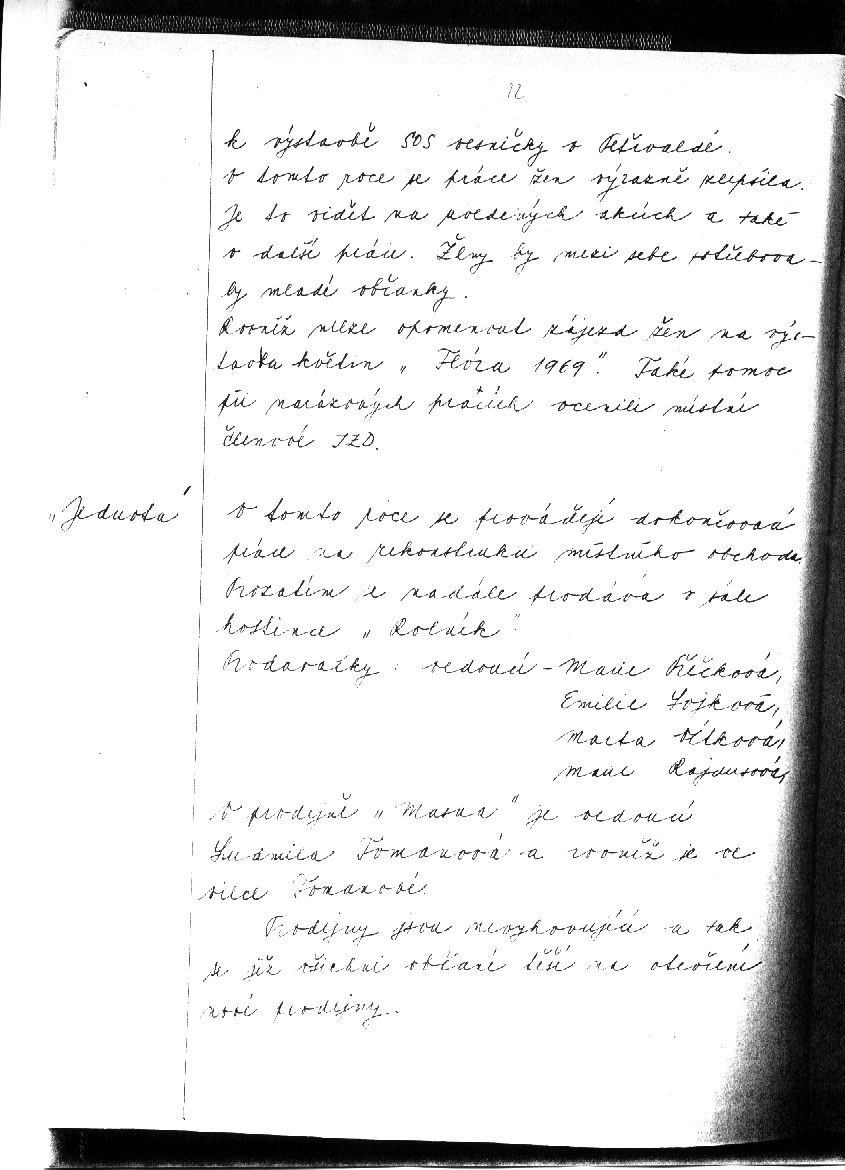 12
k výstavbě SOS vesničky v Petřvaldě.
V tomto roce se práce žen výrazně zlepšila.
Je to vidět na uvedených akcích a také
v další práci. Ženy by mezi sebe potřebova-
ly mladé občanky.
Rovněž nelze opomenout zájezd žen na výs-
tavbu květin „Flóra 1969". Také pomoc
při nárazových pracích ocenili místní
členové JZD.
„Jednota"
V tomto roce se provádějí dokončovací
práce na rekonstrukci místního obchodu.
Prozatím se nadále prodává v sále
hostince „Rolník"
Prodavačky: vedoucí - Marie
Emilie Sojková,
Marta Vítková,
Marie
V prodejně „Masna" je vedoucí
Ludmila Tomanová a rovněž je ve
vilce Tomanové.
Prodejny jsou nevyhovující a tak
se již všichni občané těší na otevření
nové prodejny.